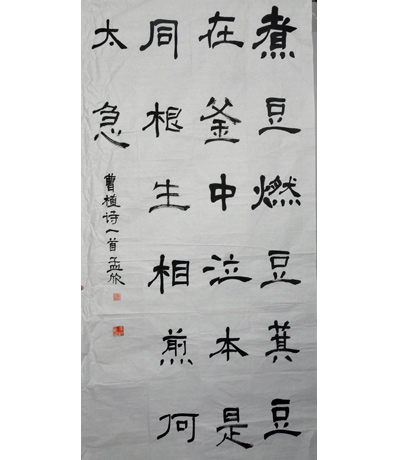 煮豆燃豆萁豆
在釜中泣本是
同根生相煎何
太急
曹植诗一首孟